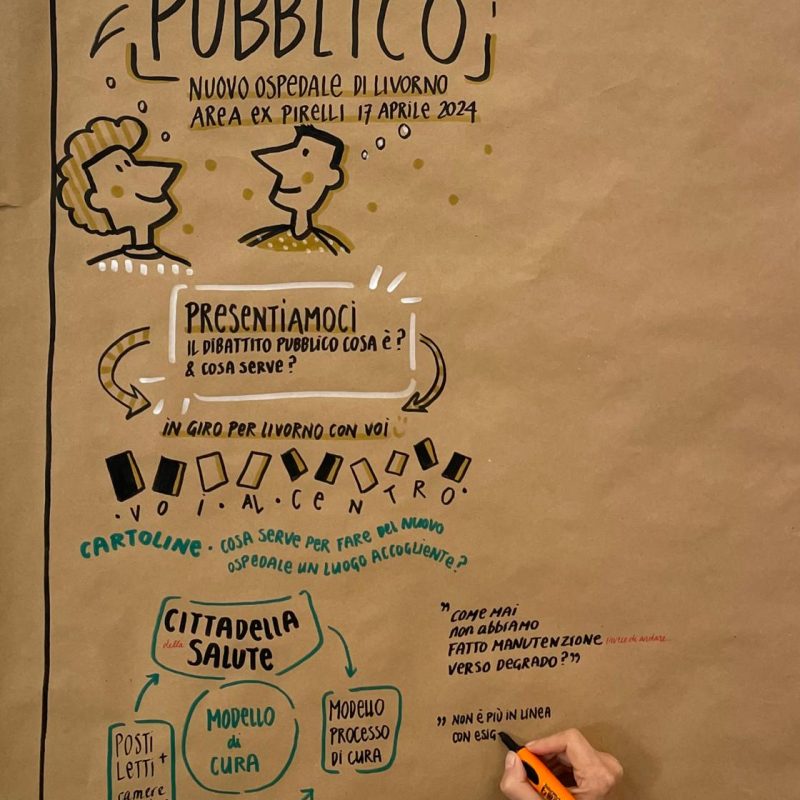 PUBBLICO
NUOVO OSPEDALE DI LIVORNO
AREA EX PIRELLI 17 APRILE 2024
PRESENTIAMOCI
IL DIBATTITO PUBBLICO COSA È?
& COSA SERVE?
IN GIRO PER LIVORNO CON VOI
· VOI · AL · CENTRO ·
CARTOLINE · COSA SERVE PER FARE DEL NUOVO
OSPEDALE UN LUOGO ACCOGLIENTE?
CITTADELLA
della SALUTE
MODELLO
di
CURA
MODELLO
PROCESSO
DI CURA
POSTI
LETTI +
camere
"COME MAI
non abbiamo
FATTO MANUTENZIONE invece di andare
VERSO DEGRADO?"
"NON È PIÙ IN LINEA
CON ESIG